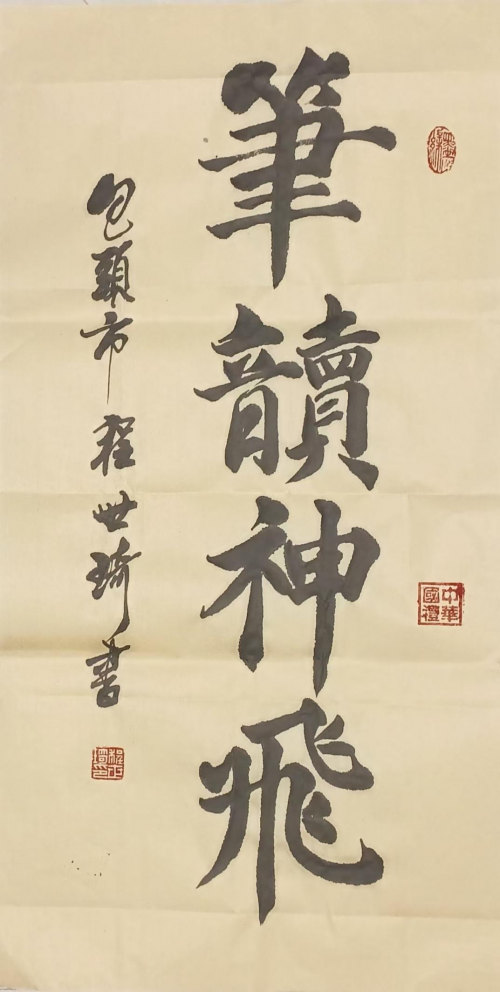 筆神飛
包頭市 程世琦 書
中華
國禮